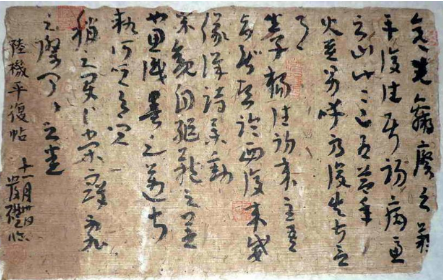 先羸瘵恐難
平復往屬初病慮
不止此此已為慶承
使唯男幸為復失前憂
耳
吳子楊往初來主吾
不能盡臨西復來威
儀詳跱舉動
成觀自軀體之美
也思識量之邁前
執所恆有宜
稱之夏伯榮寇亂
之際聞問不悉
陸機平復帖 十一月